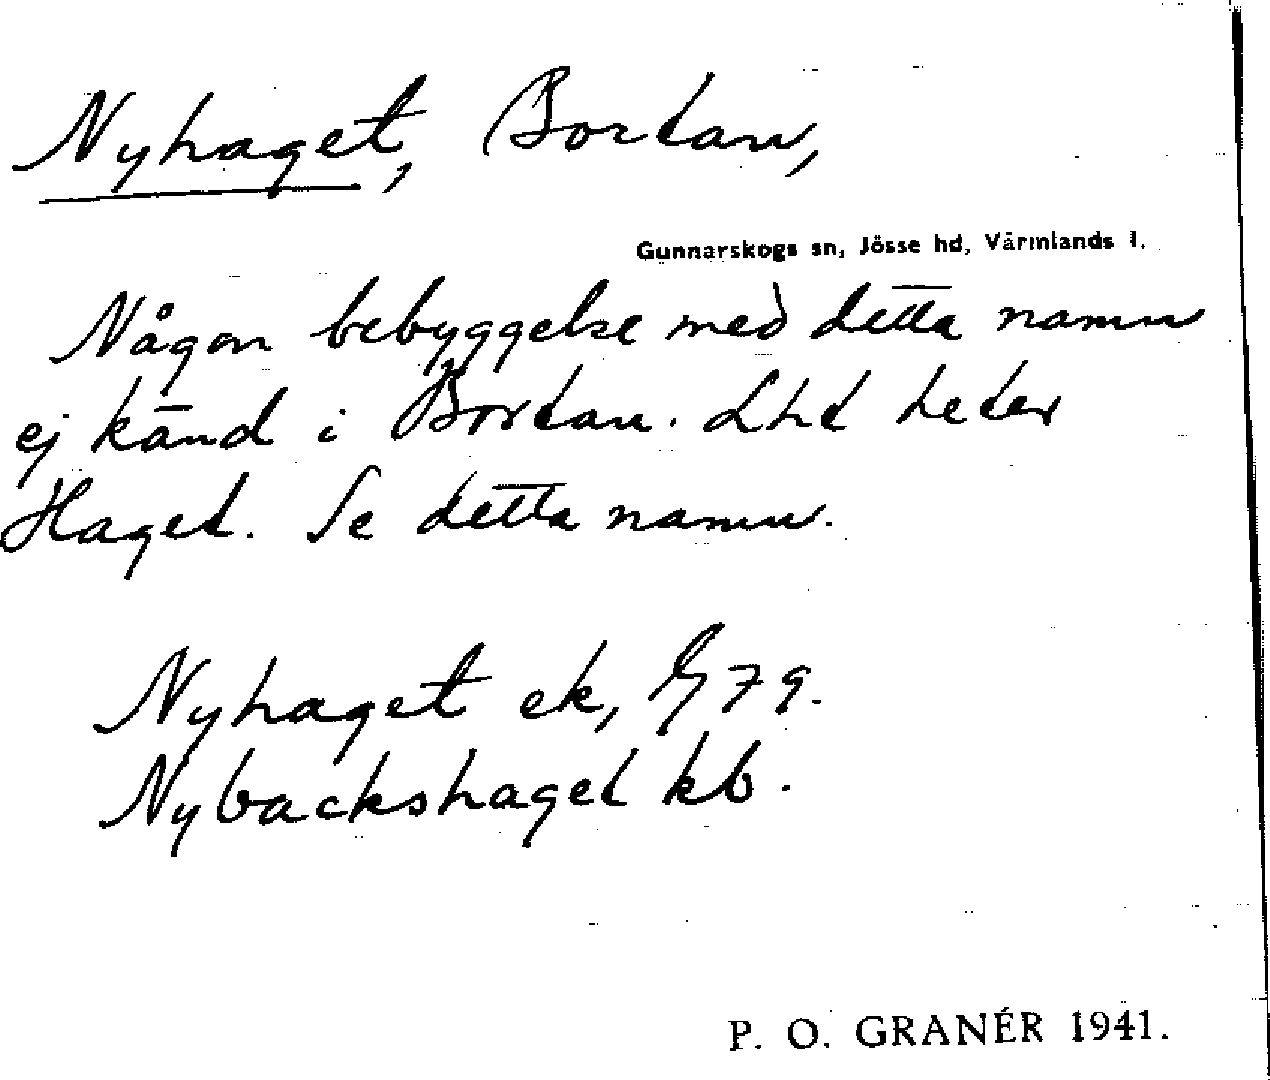 Nyhaget, Bortan,
Gunnarskogs sn, Jösse hd, Värmlands l.
Någon bebyggelse med detta namn
ej känd i Bortan. Lht heter
Haget. Se detta namn.
Nyhaget ek, G 79.
Nybackshaget kb.
P. O. GRANÉR 1941.